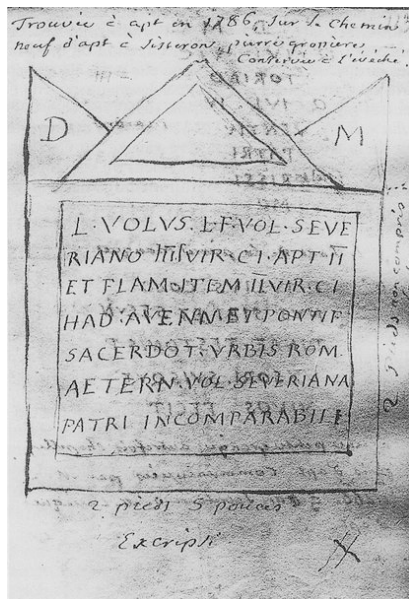 Trouvée à apt en 1786. Sur le chemin
neuf d'apt à Sisteron, pierre grossiere
Conservée à l'évêché
D M
L. VOLVS. L.F. VOL. SEVE
RIANO IIIIVIR. C I. APT II
ET FLAM. ITEM IIVIR. C I
HAD. AVENN ET PONTIF
SACERDOT. VRBIS ROM.
AETERN. VOL. SEVERIANA
PATRI INCOMPARABILI
2 pieds non compris
2 pieds 5 pouces
Excripsi